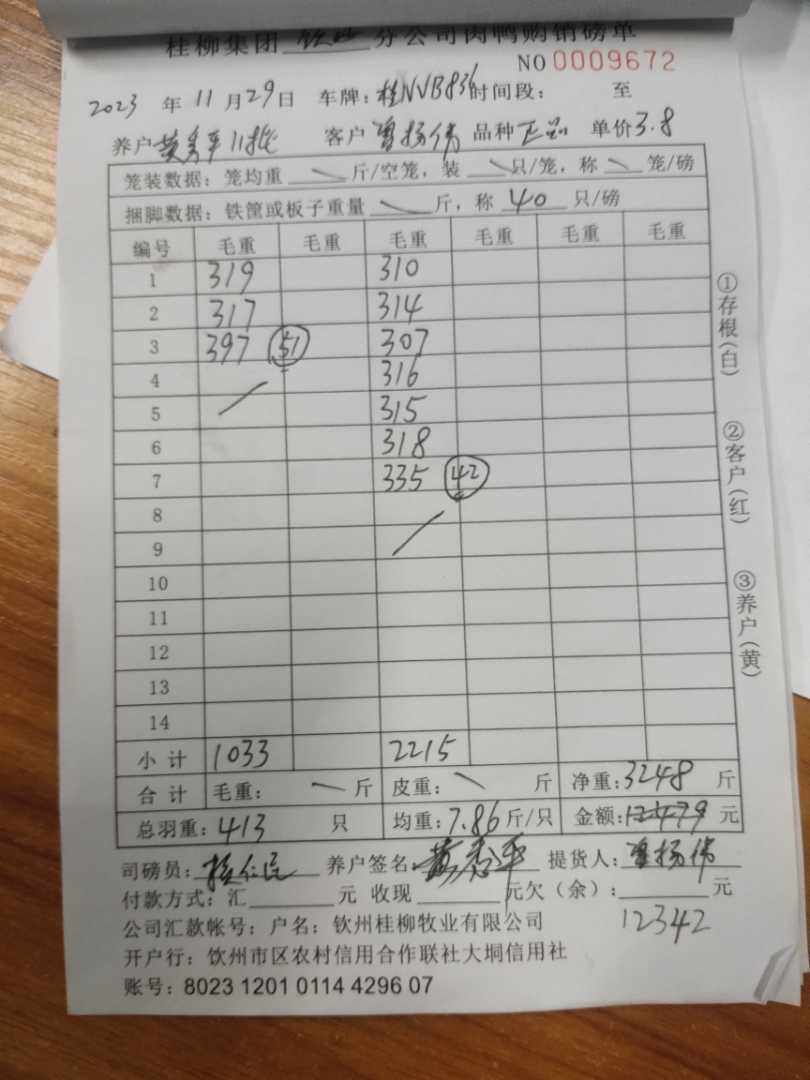 桂柳集团 钦州 分公司肉鸭购销磅单
NO 0009672
2023 年 11 月 29 日 车牌：桂NVB836 时间段： 至
养户 黄秀平 11批 客户 曾杨伟 品种 正品 单价 3.8
笼装数据：笼均重 斤/空笼，装 只/笼，称 笼/磅
捆脚数据：铁筐或板子重量 斤，称 40 只/磅
编号 毛重 毛重 毛重 毛重 毛重 毛重
1 319 310
2 317 314
3 397 51 307
4 316
5 315
6 318
7 335 42
8
9
10
11
12
13
14
小计 1033 2215
合计 毛重： 斤 皮重： 斤 净重：3248 斤
总羽重：413 只 均重：7.86 斤/只 金额：12479 元
司磅员： 养户签名 黄秀平 提货人：曾杨伟
付款方式：汇 元 收现 元欠（余）： 元
公司汇款帐号：户名：钦州桂柳牧业有限公司 12342
开户行：饮州市区农村信用合作联社大垌信用社
账号：8023 1201 0114 4296 07
①存根(白)
②客户(红)
③养户(黄)